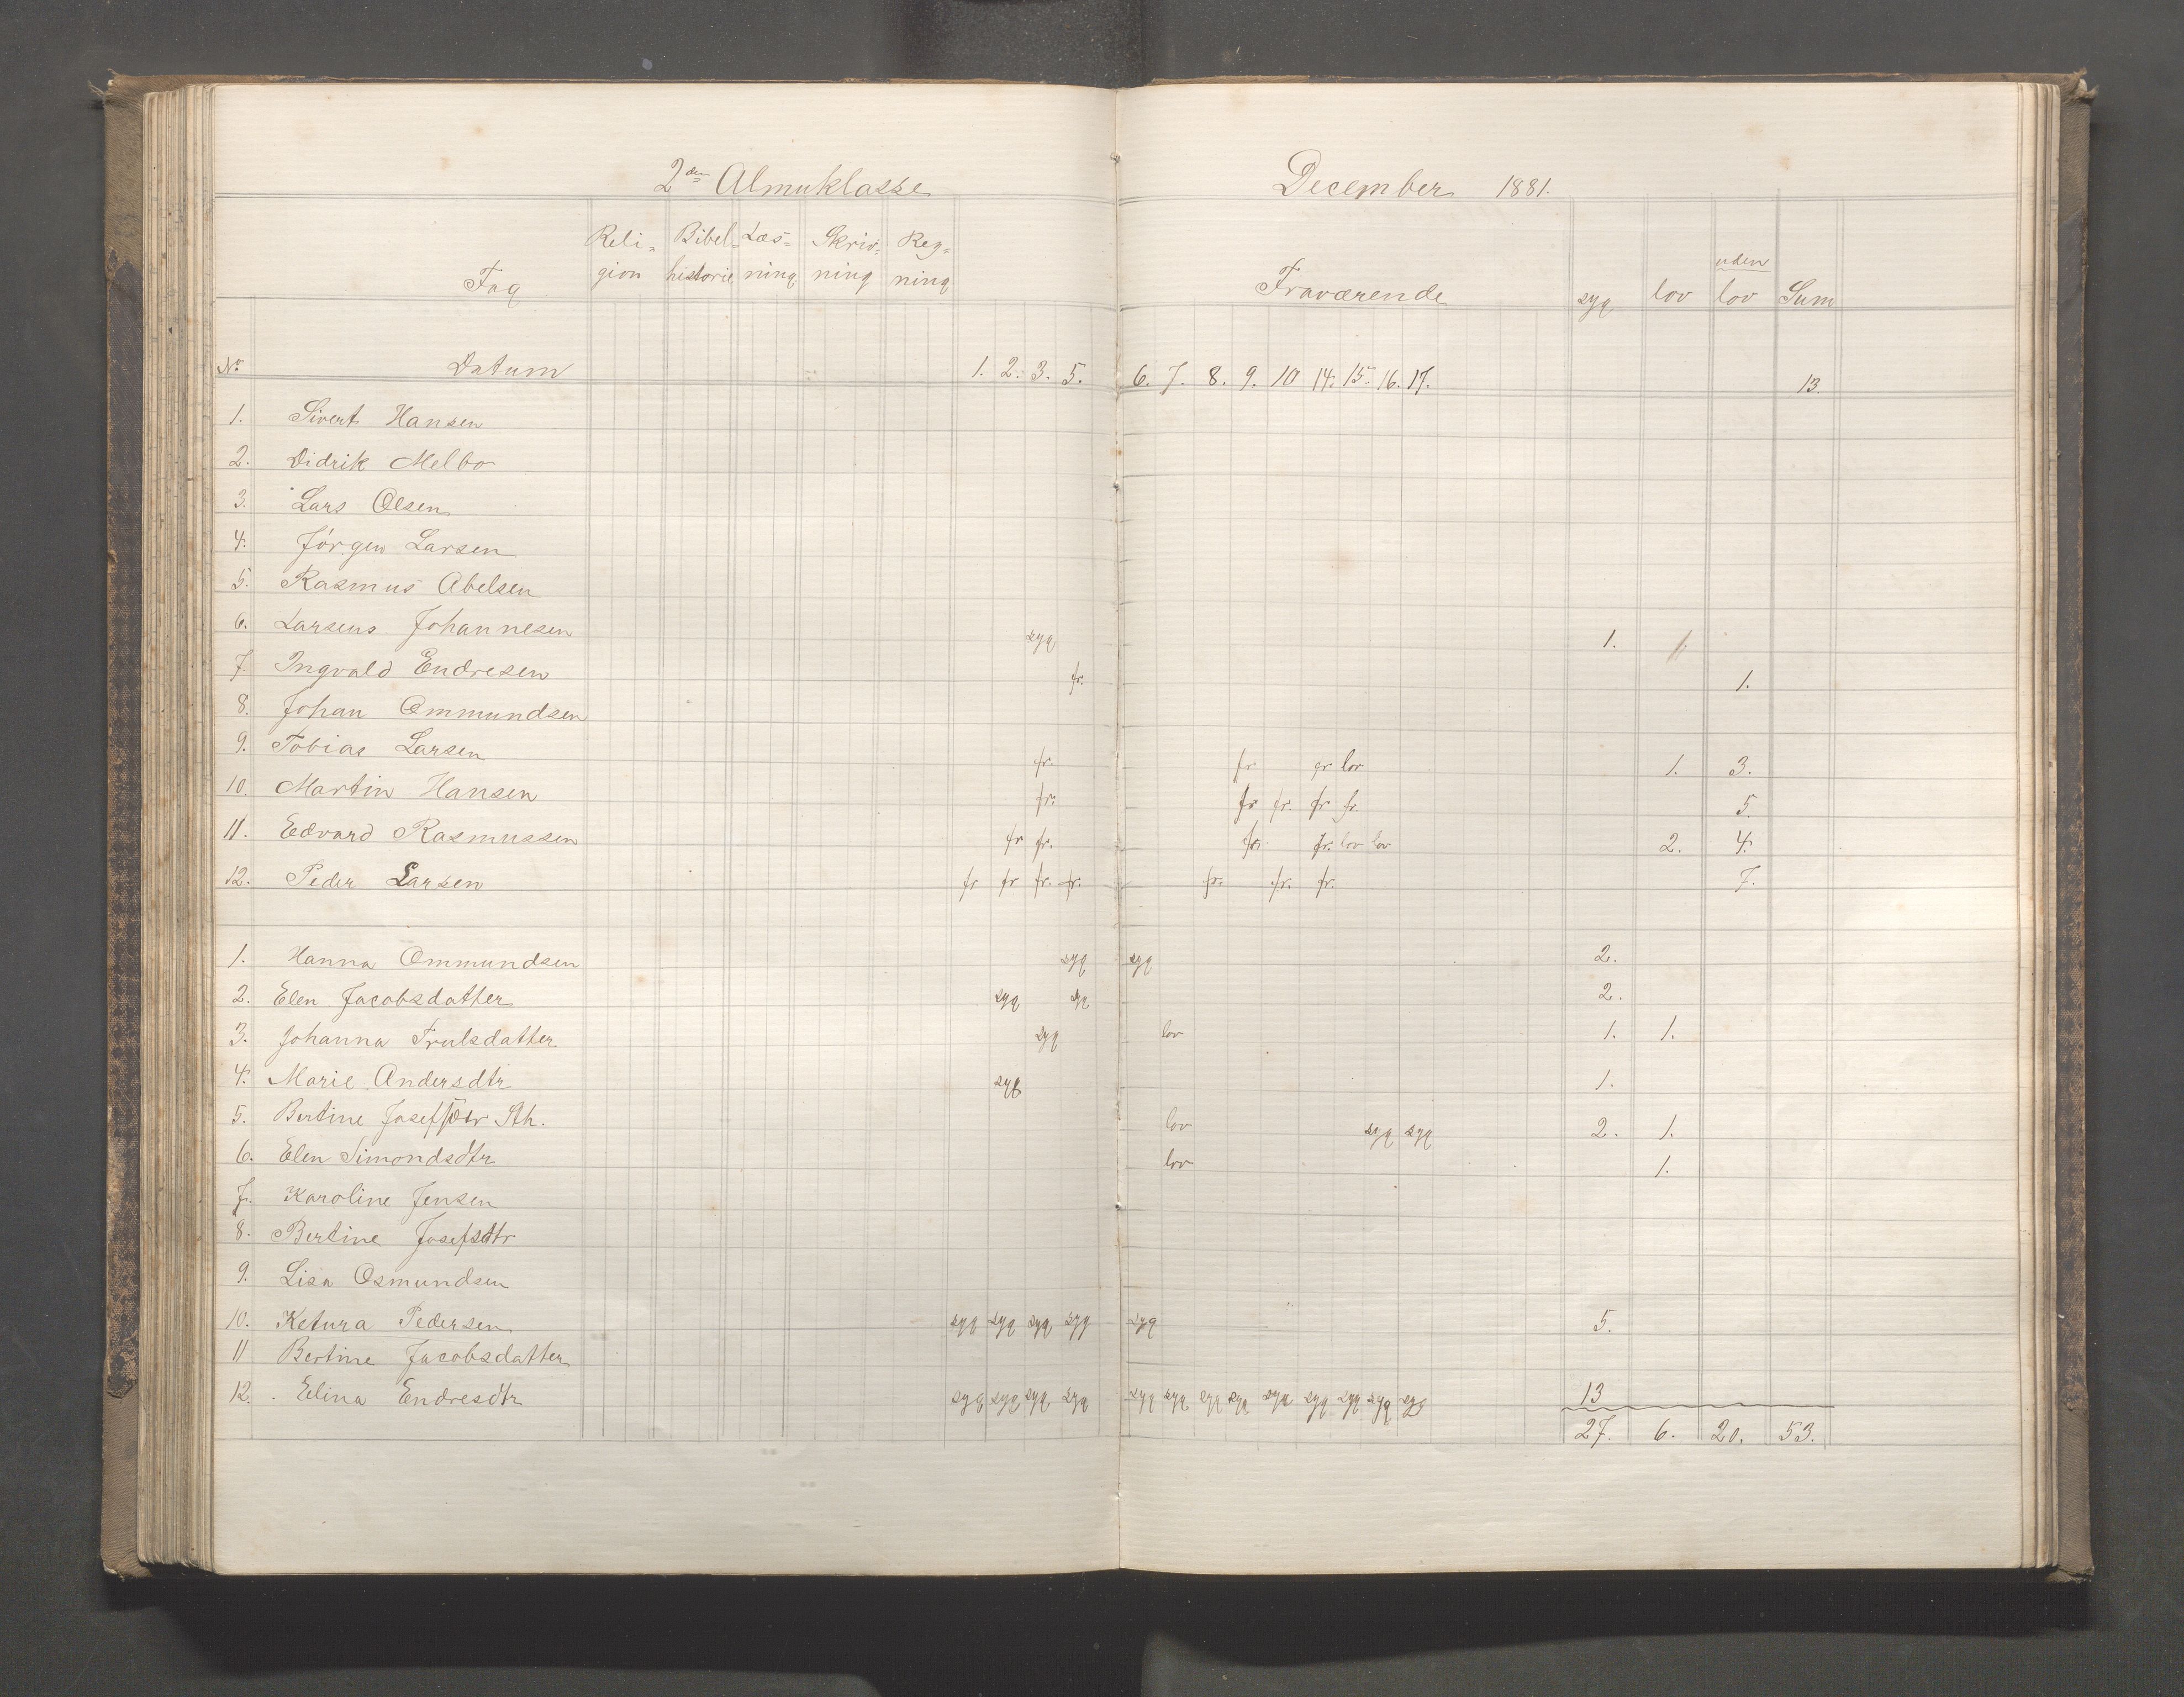 2den Almuklasse December 1881.
Fag Religion Bibelhistorie Læsning Skrivning Regning Fraværende syg lov uden lov Sum
No Datum 1. 2. 3. 5. 6. 7. 8. 9. 10 14. 15. 16. 17. 13.
1. Sivert Hansen
2. Didrik Melbo
3. Lars Olsen
4. Jørgen Larsen
5. Rasmus Abelsen
6. Larsens Johannesen syg 1.
7. Ingvald Endresen fr. 1.
8. Johan Ommundsen
9. Tobias Larsen fr. fr fr lov 1. 3.
10. Martin Hansen fr. fr fr. fr fr. 5.
11. Edvard Rasmussen fr fr. fr. fr. lov lov 2. 4.
12. Peder Larsen fr fr fr. fr. fr. fr. fr. 7.
1. Hanna Ommundsen syg syg 2.
2. Elen Jacobsdatter syg syg 2.
3. Johanna Trulsdatter syg lov 1. 1.
4. Marie Andersdtr syg 1.
5. Bertine Josefsdtr Sth. lov syg syg 2. 1.
6. Elen Simondsdtr lov 1.
7. Karoline Jensen
8. Bertine Josefsdtr
9. Lisa Osmundsen
10. Ketura Pedersen syg syg syg syg syg 5.
11 Bertine Jacobsdatter
12. Elina Endresdtr syg syg syg syg syg syg syg syg syg syg syg syg syg 13
27. 6. 20. 53.